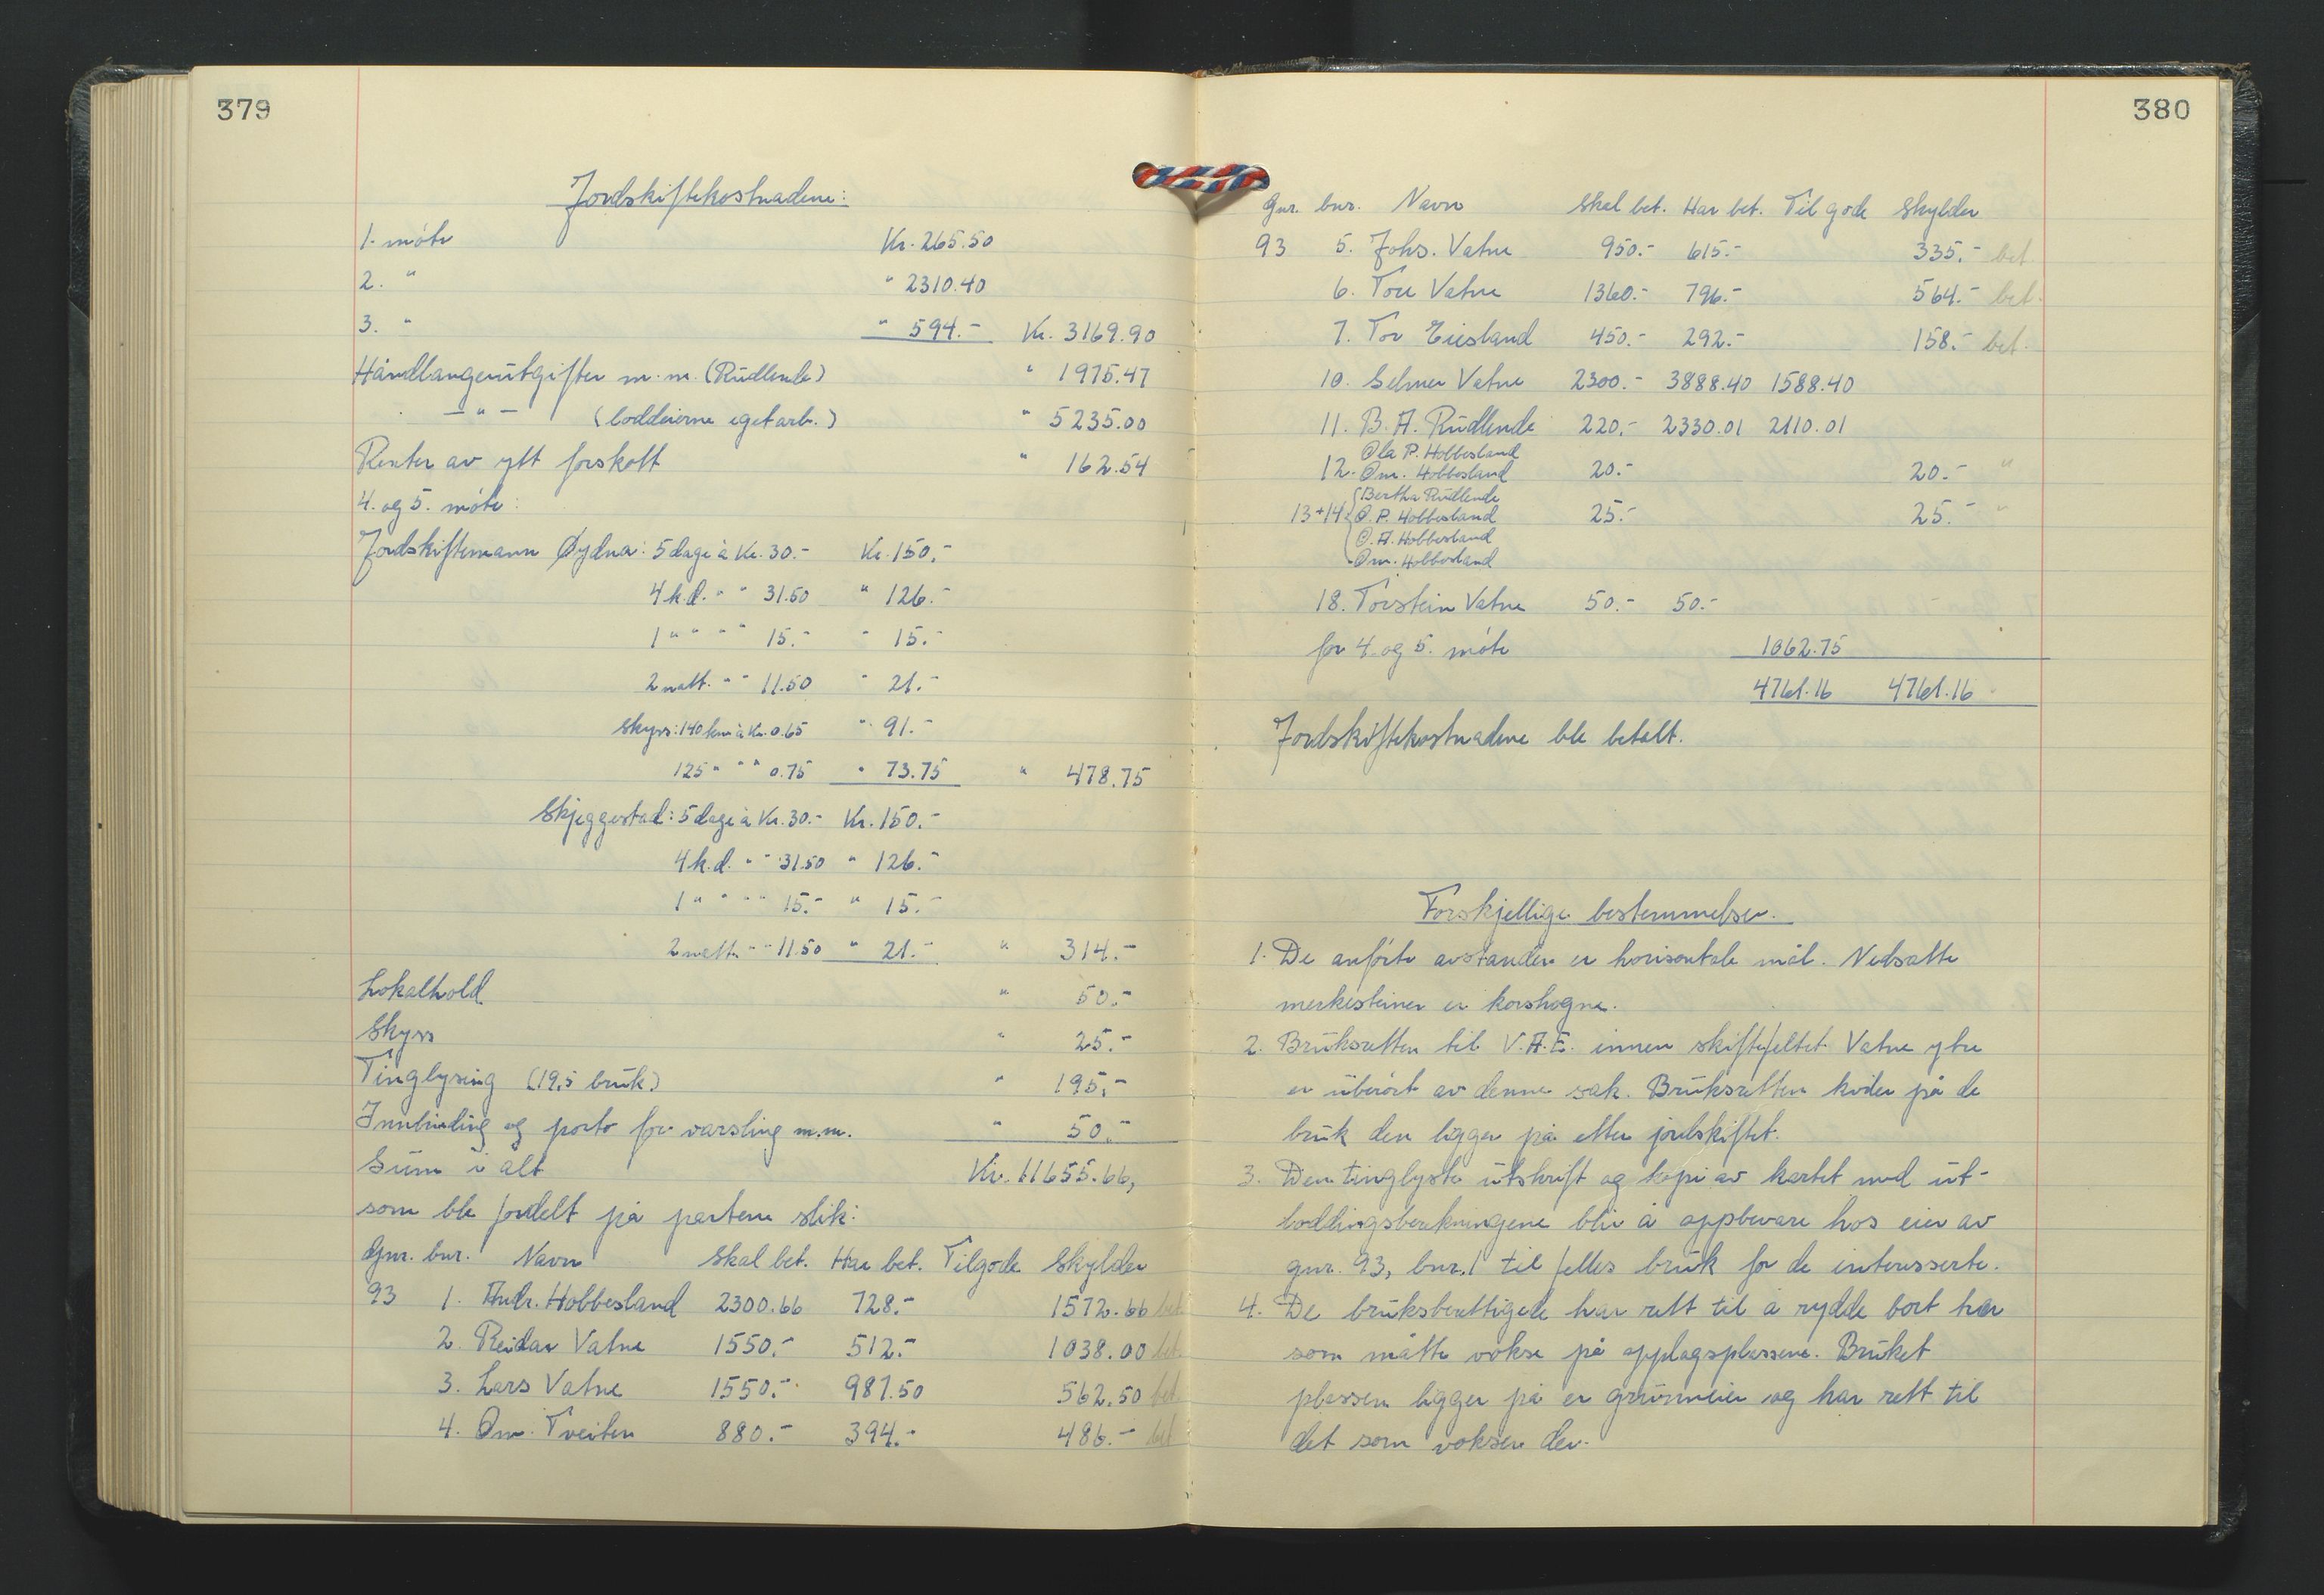 379
Jordskiftekostnadene:
1. møte Kr. 265.50
2. " " 2310.40
3. " " 594.- Kr. 3169.90
Håndlangerutgifter m.m. (Rudlende) " 1975.47
— " — (loddeierne eget arb.) " 5235.00
Renter av ytt forskott " 162.54
4. og 5. møte:
Jordskiftemann Øydna: 5 dage à Kr. 30.- Kr. 150.-
4 k.d. " " 31.50 " 126.-
1 " " " " 15.- " 15.-
2 natt. " " 11.50 " 21.-
Skyss: 140 km à Kr. 0.65 " 91.-
125 " " " 0.75 " 73.75 " 478.75
Skjeggestad: 5 dage à Kr. 30.- Kr. 150.-
4 k.d. " " 31.50 " 126.-
1 " " " " 15.- " 15.-
2 natt. " " 11.50 " 21.- " 314.-
Lokalhold " 50.-
Skyss " 25.-
Tinglysing (19,5 bruk) " 195.-
Innbinding og porto for varsling m.m. " 50.-
Sum i alt Kr. 11655.66,
som ble fordelt på partene slik:
Gnr. bnr. Navn Skal bet. Har bet. Tilgode Skylder
93 1. Andr. Hobbesland 2300.66 728.- 1572.66 bet.
2. Reidar Vatne 1550.- 512.- 1038.00 bet.
3. Lars Vatne 1550.- 987.50 562.50 bet
4. Om. Tveiten 880.- 394.- 486.- bet
380
Gnr. bnr. Navn Skal bet. Har bet. Til gode Skylder
93 5. Johs. Vatne 950.- 615.- 335.- bet.
6. Tore Vatne 1360.- 796.- 564.- bet.
7. Tor Eiesland 450.- 292.- 158.- bet.
10. Selmer Vatne 2300.- 3888.40 1588.40
11. B. A. Rudlende 220.- 2330.01 2110.01
Ola P. Hobbesland
12. Om. Hobbesland 20.- 20.- "
Bertha Rudlende
13+14 O. P. Hobbesland 25.- 25.- "
O. A. Hobbesland
Om. Hobbesland
18. Torstein Vatne 50.- 50.-
for 4. og 5. møte 1062.75
4761.16 4761.16
Jordskiftekostnadene ble betalt.
Forskjellige bestemmelser.
1. De anførte avstander er horisontale mål. Nedsatte
merkesteiner er korshogne.
2. Bruksretten til V.A.E. innen skiftefeltet Vatne ytre
er uberørt av denne sak. Bruksretten kviler på de
bruk den ligger på etter jordskiftet.
3. Den tinglyste utskrift og kopi av kartet med ut-
loddingsberekningene blir å oppbevare hos eier av
gnr. 93, bnr. 1 til felles bruk for de interesserte.
4. De bruksberettigede har rett til å rydde bort hva
som måtte vokse på opplagsplassene. Bruket
plassen ligger på er grunneier og har rett til
det som vokser der.